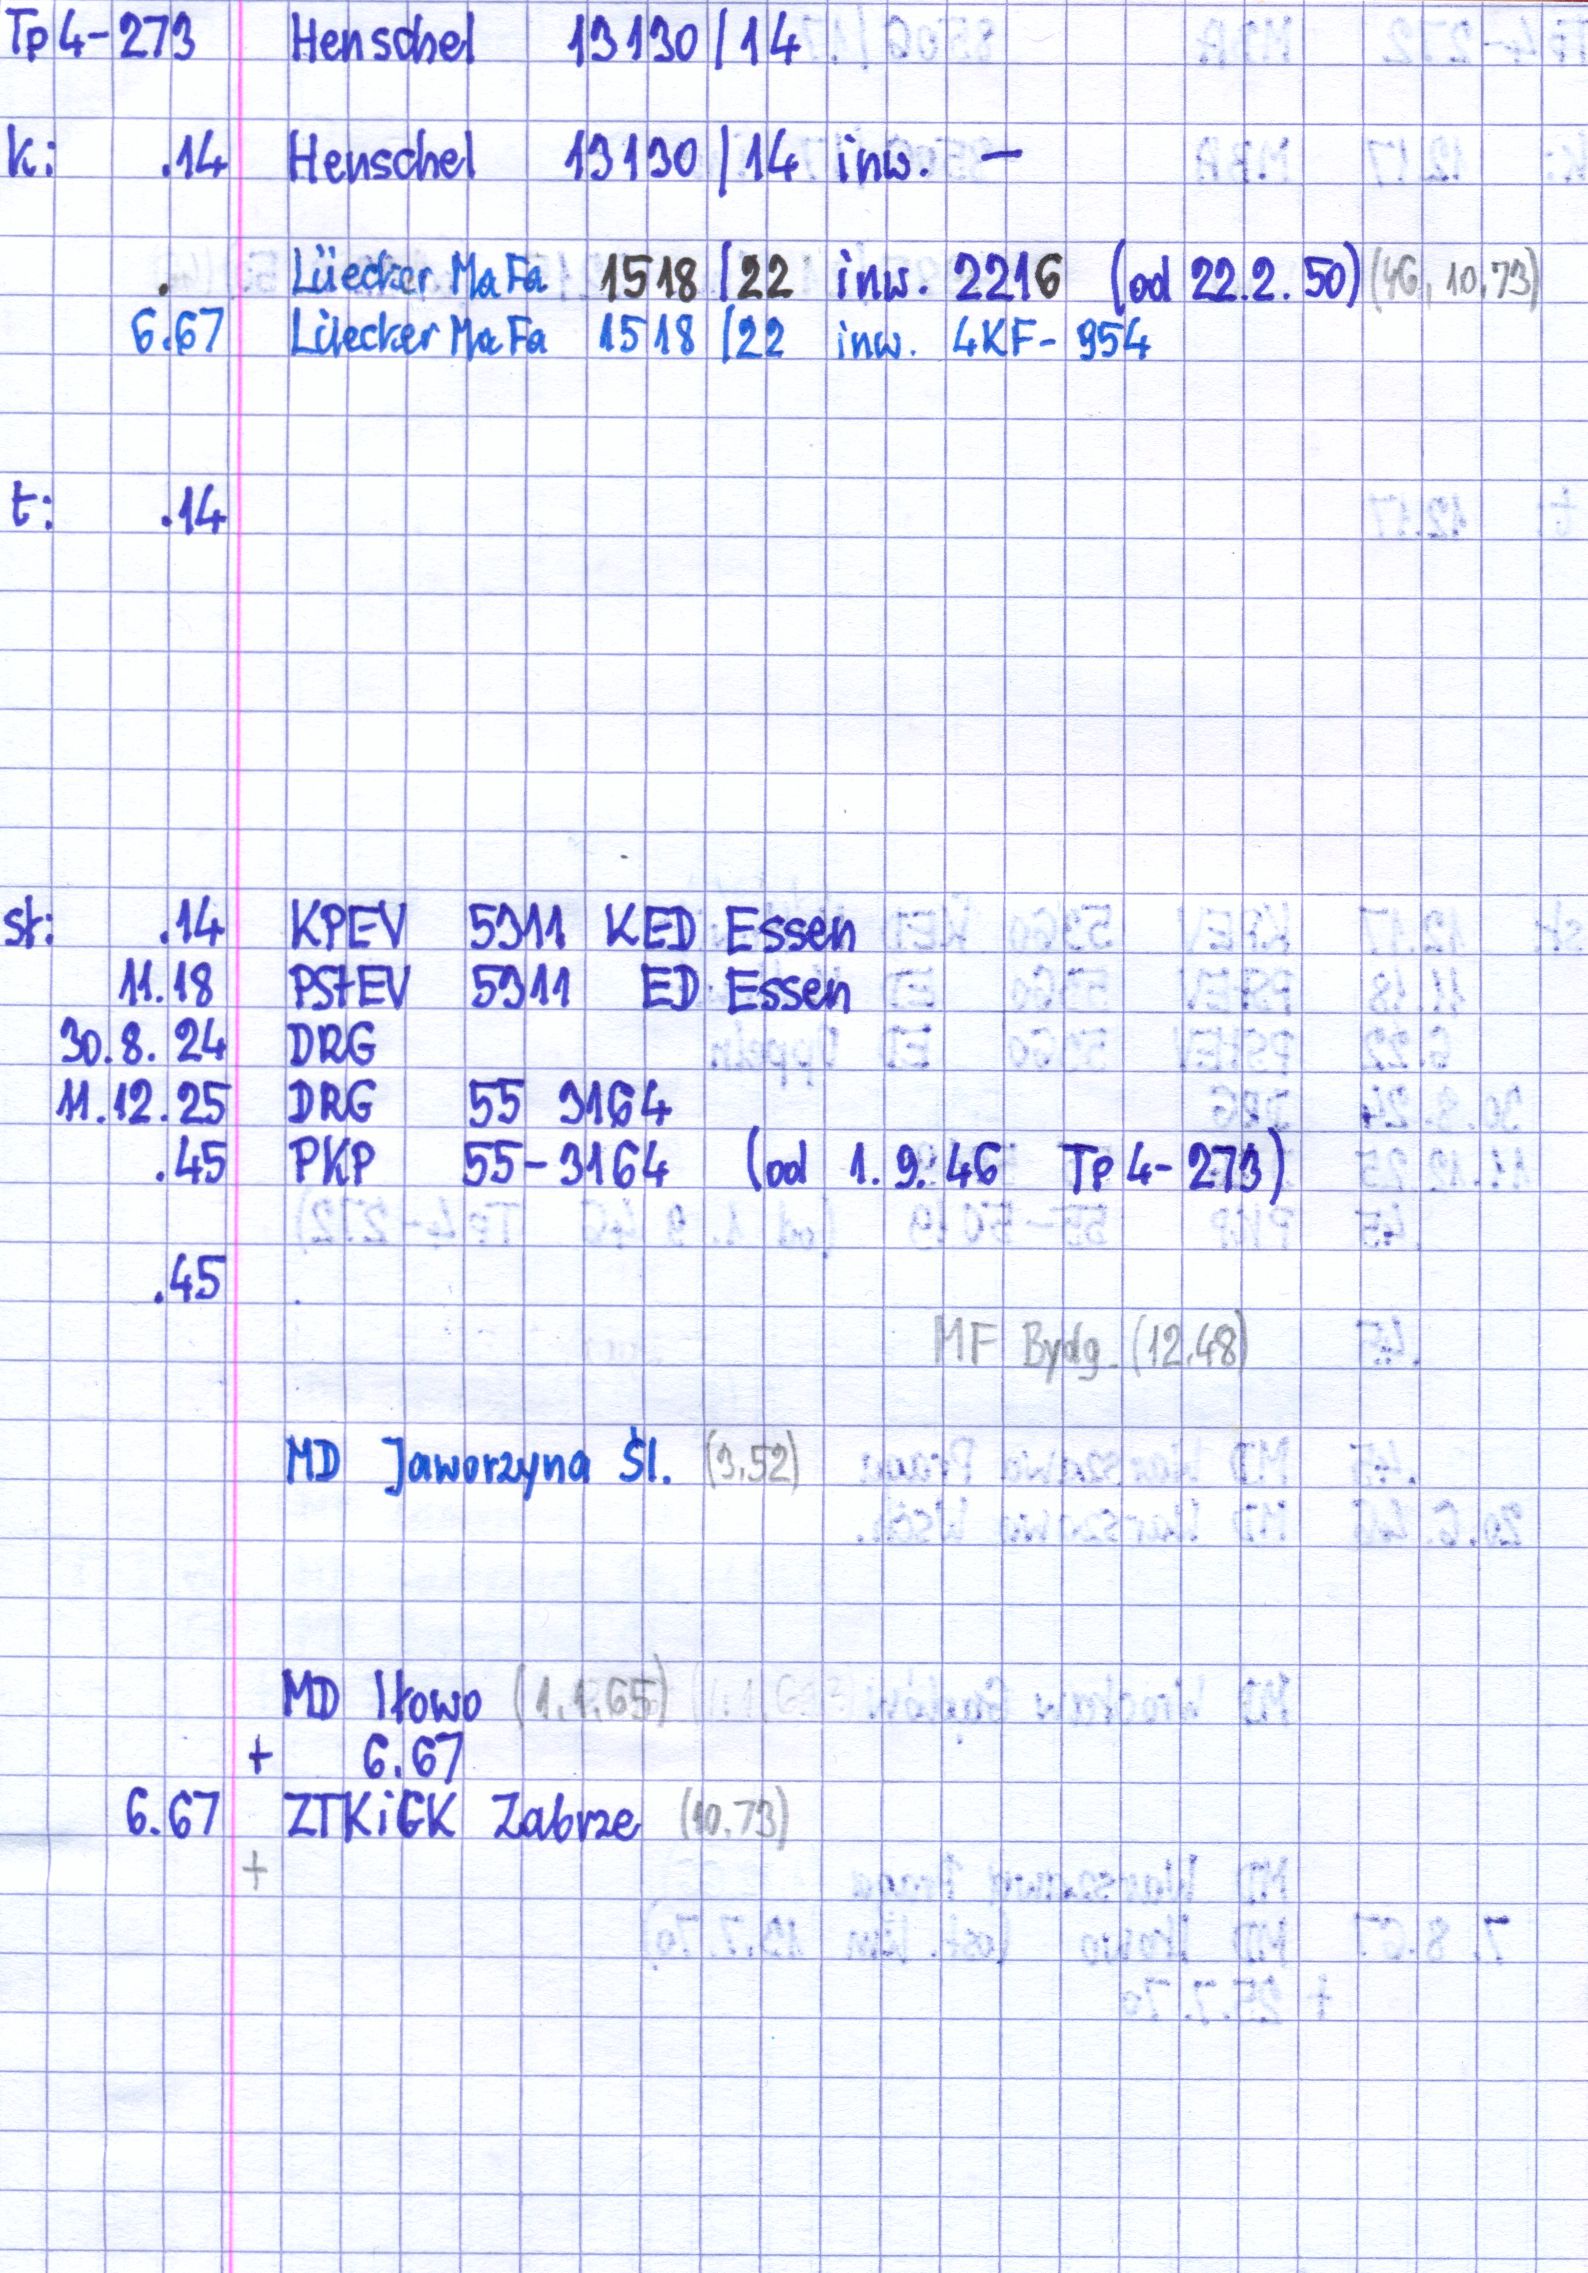 Tp4-273 Henschel 13130/14
k: .14 Henschel 13130/14 inw. –
. Lüecker MaFa 1518/22 inw. 2216 (od 22.2.50) (46, 10.73)
6.67 Lüecker MaFa 1518/22 inw. 4KF-954
t: .14
st: .14 KPEV 5311 KED Essen
11.18 PStEV 5311 ED Essen
30.8.24 DRG
11.12.25 DRG 55 3164
.45 PKP 55-3164 (od 1.9.46 Tp4-273)
.45 .
MF Bydg. (12.48)
MD Jaworzyna Śl. (3.52)
MD Iłowo (1.1.65)
+ 6.67
6.67 ZTKiGK Zabrze (10.73)
+